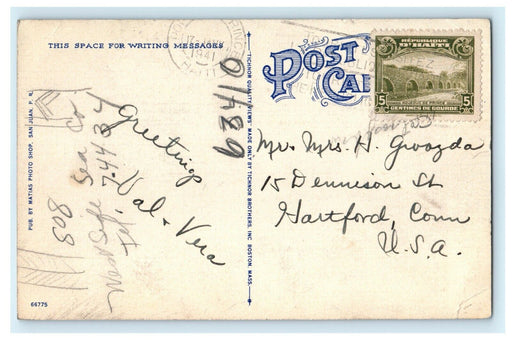 THIS SPACE FOR WRITING MESSAGES
POST
CA
RÉPUBLIQUE
D'HAITI
5
5
CENTIMES DE GOURDE
1941
HAITI
Greetings
Val + Vera
Mr. Mrs. H. Gwozda
15 Dennison St
Hartford, Conn
U.S.A.
PUB. BY MATIAS PHOTO SHOP, SAN JUAN, P. R.
"TICHNOR QUALITY VIEWS" MADE ONLY BY TICHNOR BROTHERS, INC. BOSTON, MASS.
808
66775